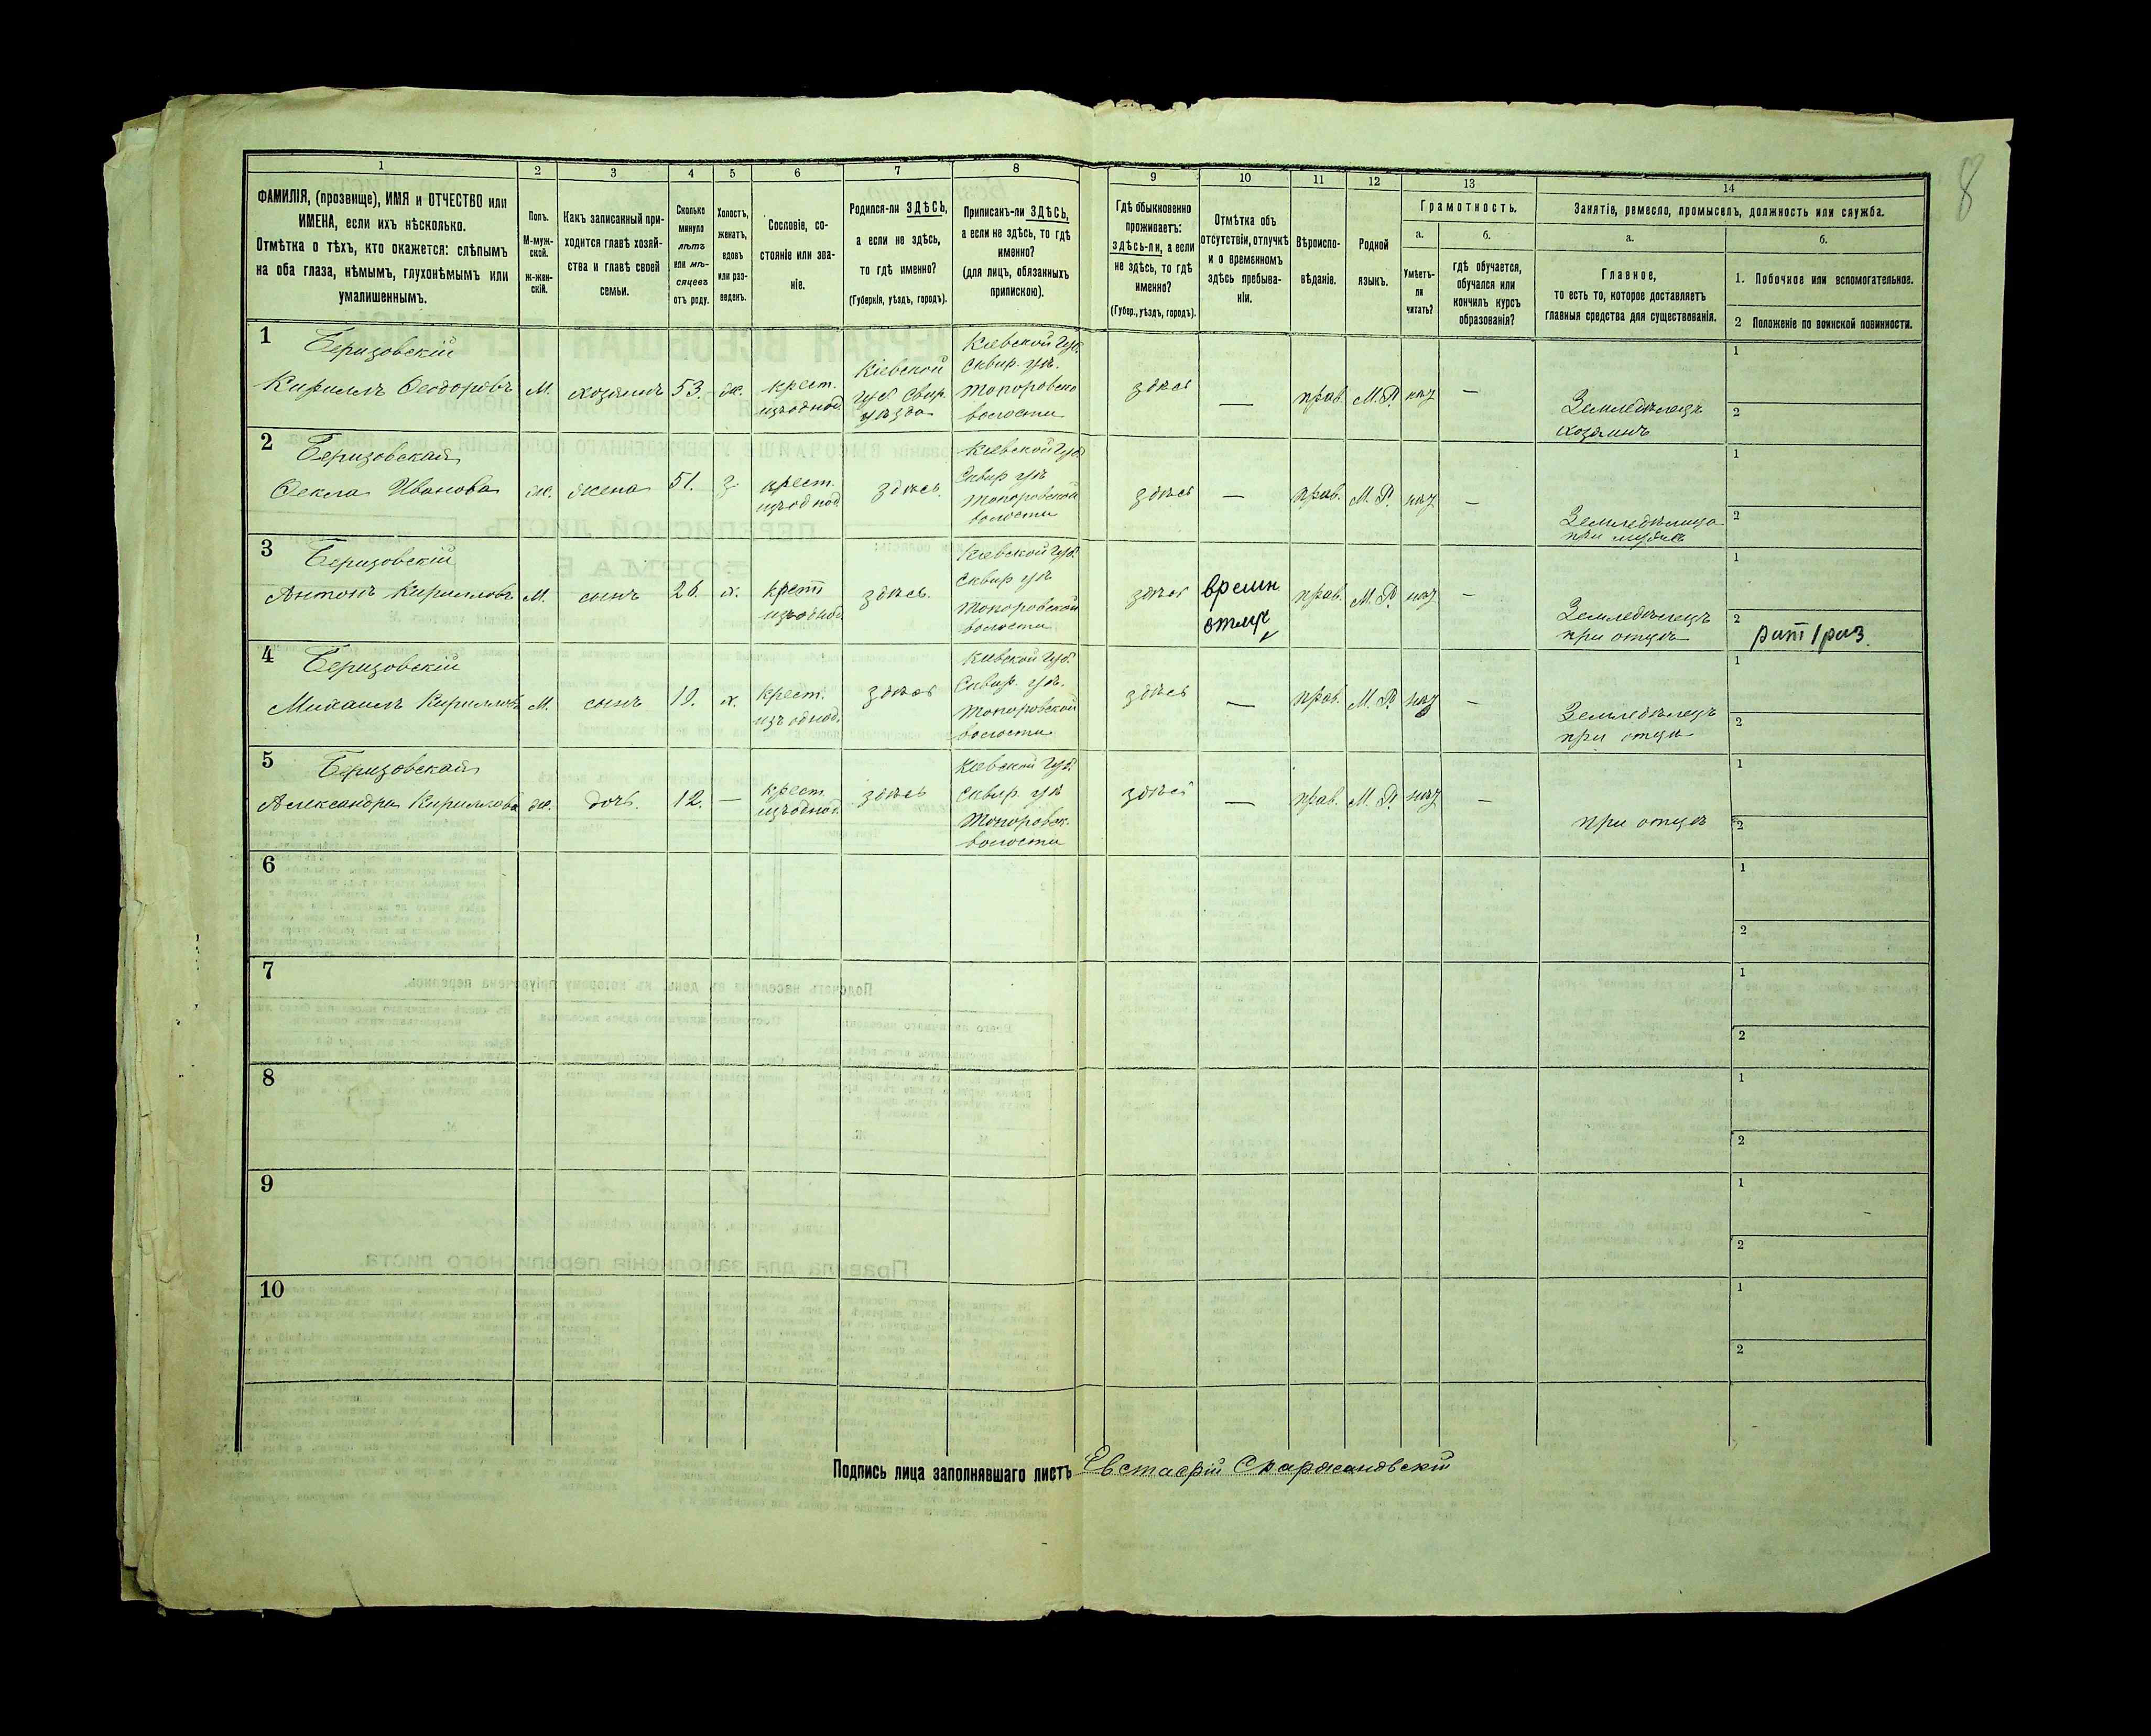 8
1 2 3 4 5 6 7 8 9 10 11 12 13 14
ФАМИЛІЯ, (прозвище), ИМЯ и ОТЧЕСТВО или
ИМЕНА, если ихъ нѣсколько.
Отмѣтка о тѣхъ, кто окажется: слѣпымъ
на оба глаза, нѣмымъ, глухонѣмымъ или
умалишеннымъ.
Полъ.
М-муж-
ской.
ж-жен-
скій.
Какъ записанный при-
ходится главѣ хозяй-
ства и главѣ своей
семьи.
Сколько
минуло
лѣтъ
или мѣ-
сяцевъ
отъ роду.
Холостъ,
женатъ,
вдовъ
или раз-
веденъ.
Сословіе, со-
стояніе или зва-
ніе.
Родился-ли ЗДѢСЬ,
а если не здѣсь,
то гдѣ именно?
(Губернія, уѣздъ, городъ).
Приписанъ-ли ЗДѢСЬ,
а если не здѣсь, то гдѣ
именно?
(для лицъ, обязанныхъ
припискою).
Гдѣ обыкновенно
проживаетъ:
здѣсь-ли, а если
не здѣсь, то гдѣ
именно?
(Губер., уѣздъ, городъ).
Отмѣтка объ
отсутствіи, отлучкѣ
и о временномъ
здѣсь пребыва-
ніи.
Вѣроиспо-
вѣданіе.
Родной
языкъ.
Грамотность.
а.
Умѣетъ-
ли
читать?
б.
гдѣ обучается,
обучался или
кончилъ курсъ
образованія?
Занятіе, ремесло, промыселъ, должность или служба.
а.
Главное,
то есть то, которое доставляетъ
главныя средства для существованія.
б.
1. Побочное или вспомогательное.
2 Положеніе по воинской повинности.
1
Беризовскій
Кириллъ Ѳеодоровъ
М.
хозяинъ
53.
ж.
крест.
изъ однод.
Кіевской
губ Сквир.
уѣзда
Кіевской Губ.
Сквир. уѣ.
Топоровско
волости
здѣсь
—
прав.
М. Р.
—
Земледѣлецъ
хозяинъ
1
2
2
Беризовская
Ѳекла Иванова
ж.
жена
51.
з.
крест.
изъ однод
здѣсь.
Кіевской Губ
Сквир уѣ
Топоровской
волости
здѣсь
—
прав.
М. Р.
—
Земледѣлица
при мужѣ
1
2
3
Беризовскій
Антонъ Кирилловъ
М.
сынъ
26.
х.
крест
изъ однод.
здѣсь.
Кіевской Губ.
Сквир уѣ
Топоровской
волости
здѣсь
времен
отлуч
прав.
М. Р.
—
Земледѣлецъ
при отцѣ
1
2
рат 1 раз.
4
Беризовскій
Михаилъ Кирилловъ
М.
сынъ
19.
х.
крест.
изъ однод.
здѣсь
Кіевской Губ.
Сквир. уѣ.
Топоровской
волости
здѣсь
—
прав.
М. Р.
—
Земледѣлецъ
при отцѣ
1
2
5
Беризовская
Александра Кириллова
ж.
дочь.
12.
—
крест.
изъ однод.
здѣсь
Кіевской Губ.
Сквир. уѣ
Топоровск.
волости
здѣсь
—
прав.
М. Р.
—
при отцѣ
1
2
6
1
2
7
1
2
8
1
2
9
1
2
10
1
2
Подпись лица заполнявшаго листъ Евстафій Скаржановскій